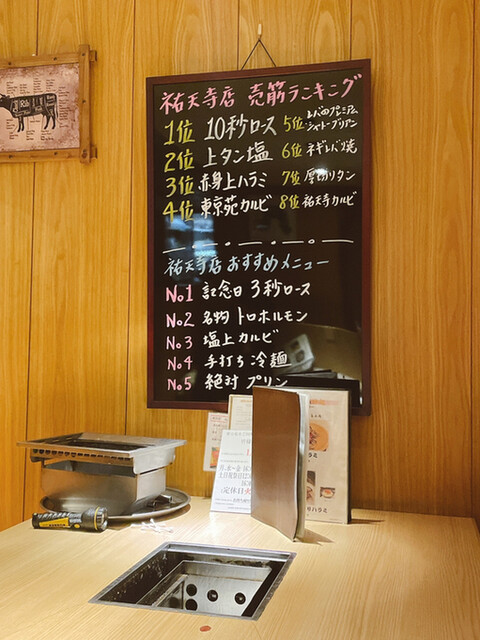 祐天寺店 売筋ランキング
1位 10秒ロース
2位 上タン塩
3位 赤身上ハラミ
4位 東京苑カルビ
5位 レバ四プレミアム
シャトーブリアン
6位 ネギレバ焼
7位 厚切りタン
8位 祐天寺カルビ
祐天寺店 おすすめメニュー
No1 記念日 3秒ロース
No2 名物 トロホルモン
No3 塩上カルビ
No4 手打ち冷麺
No5 絶対プリン
定休日
Rib